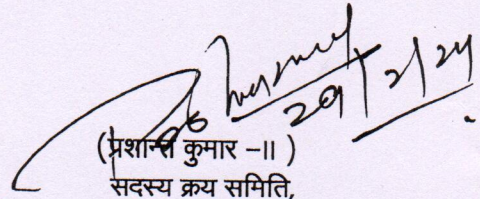 29/2/24
(प्रशान्त कुमार –II )
सदस्य क्रय समिति,